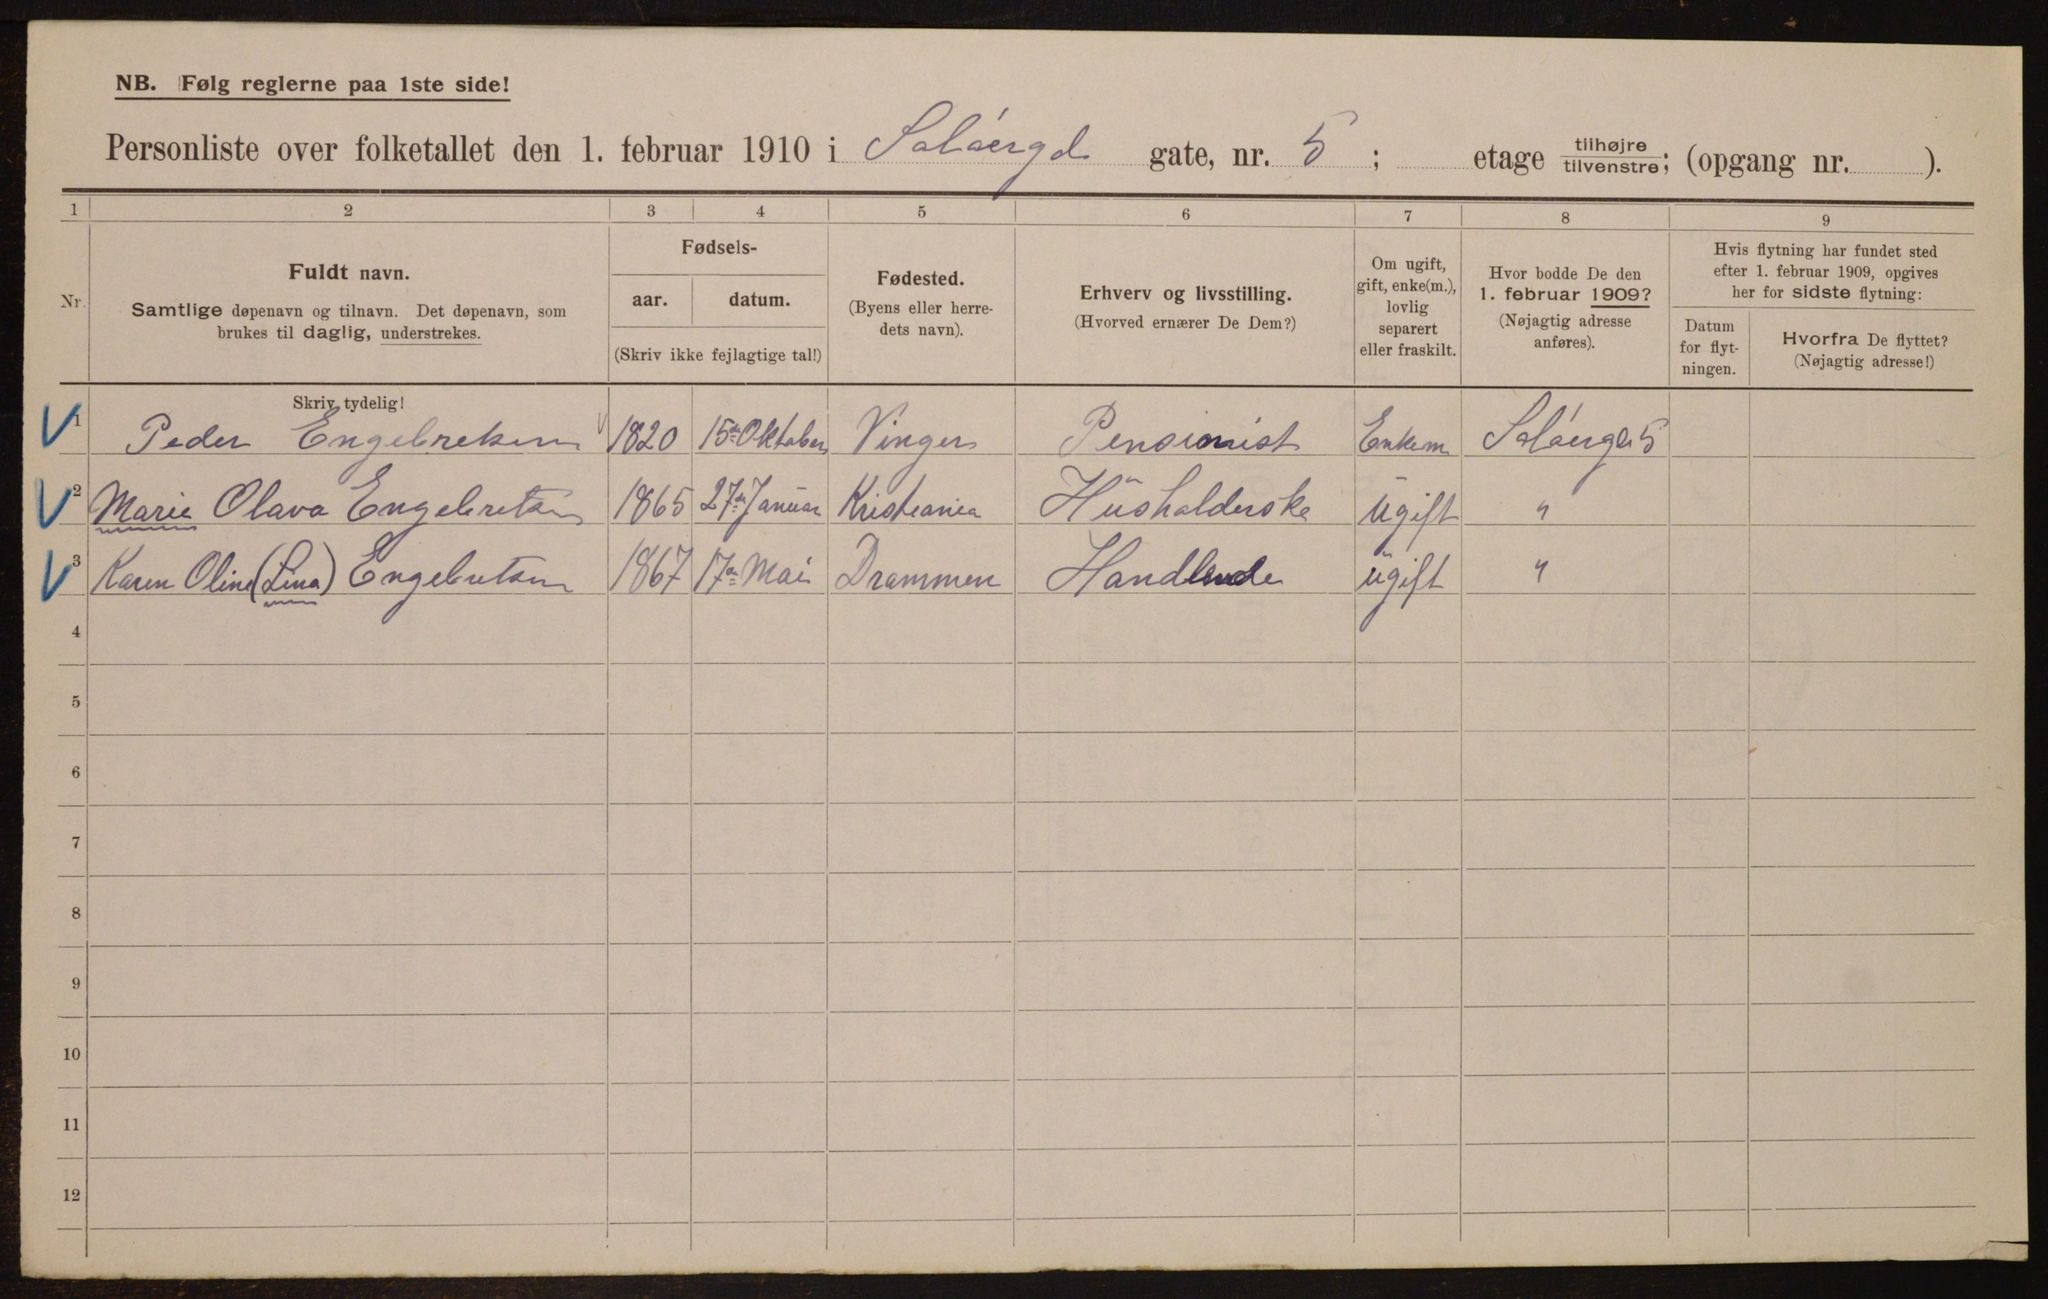 NB. Følg reglerne paa 1ste side!
Personliste over folketallet den 1. februar 1910 i Solóergd gate, nr. 5 ; etage tilhøjre tilvenstre; (opgang nr. ).
1 2 3 4 5 6 7 8 9
Nr.
Fuldt navn.
Samtlige døpenavn og tilnavn. Det døpenavn, som
brukes til daglig, understrekes.
Fødsels-
aar. datum.
(Skriv ikke fejlagtige tal!)
Fødested.
(Byens eller herre-
dets navn).
Erhverv og livsstilling.
(Hvorved ernærer De Dem?)
Om ugift,
gift, enke(m.),
lovlig
separert
eller fraskilt.
Hvor bodde De den
1. februar 1909?
(Nøjagtig adresse
anføres).
Hvis flytning har fundet sted
efter 1. februar 1909, opgives
her for sidste flytning:
Datum
for flyt-
ningen.
Hvorfra De flyttet?
(Nøjagtig adresse!)
Skriv tydelig!
1 Peder Engebretsen 1820 15de Oktober Vinger Pensionist Enkem Solóergd 5
2 Marie Olava Engebretsen 1865 27de Januar Kristiania Husholderske Ugift "
3 Karen Oline (Lina) Engebretsen 1867 17de Mai Drammen Handlende Ugift "
4
5
6
7
8
9
10
11
12